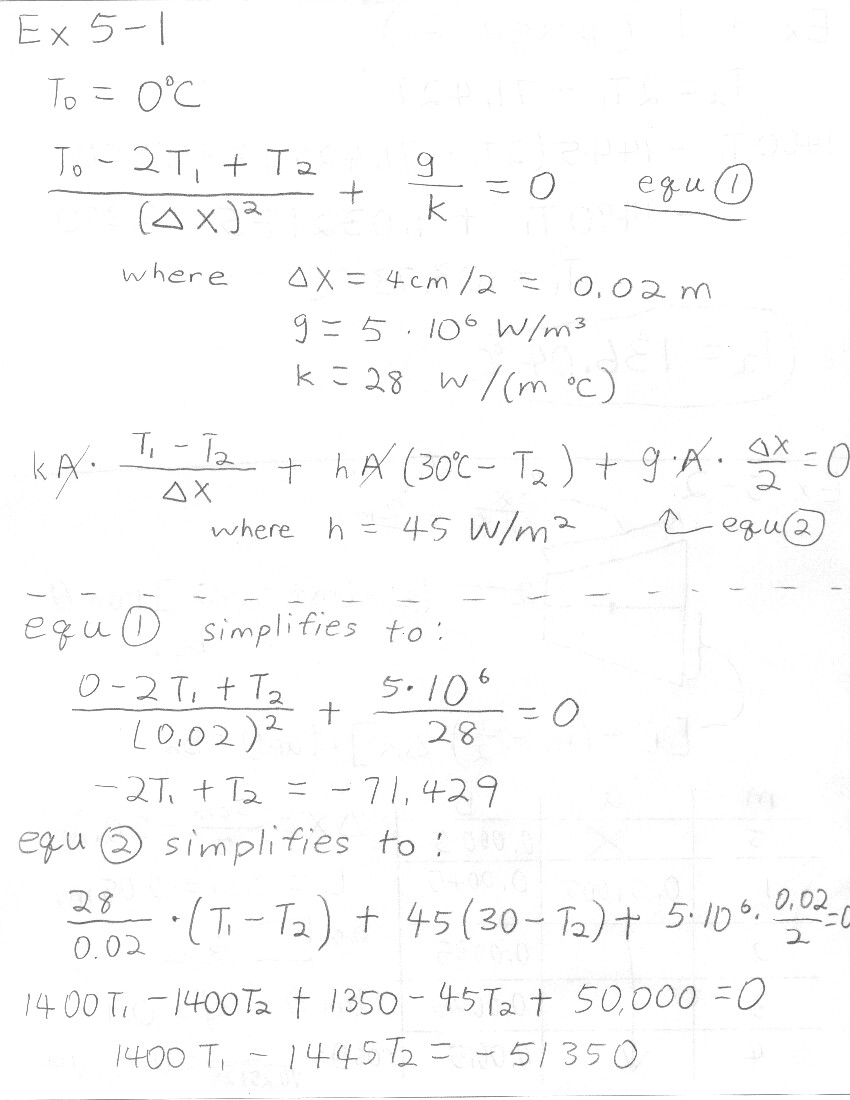 Ex 5-1
T₀ = 0°C
(T₀ - 2T₁ + T₂)/(ΔX)² + g/k = 0 equ ①
where ΔX = 4cm/2 = 0.02 m
g = 5 · 10⁶ W/m³
k = 28 W/(m °C)
kA · (T₁ - T₂)/ΔX + hA(30°C - T₂) + g·A· ΔX/2 = 0
where h = 45 W/m² equ ②
equ ① simplifies to:
(0 - 2T₁ + T₂)/(0.02)² + 5·10⁶/28 = 0
-2T₁ + T₂ = -71.429
equ ② simplifies to:
28/0.02 · (T₁ - T₂) + 45(30 - T₂) + 5·10⁶ · 0.02/2 = 0
1400T₁ - 1400T₂ + 1350 - 45T₂ + 50,000 = 0
1400 T₁ - 1445T₂ = -51350